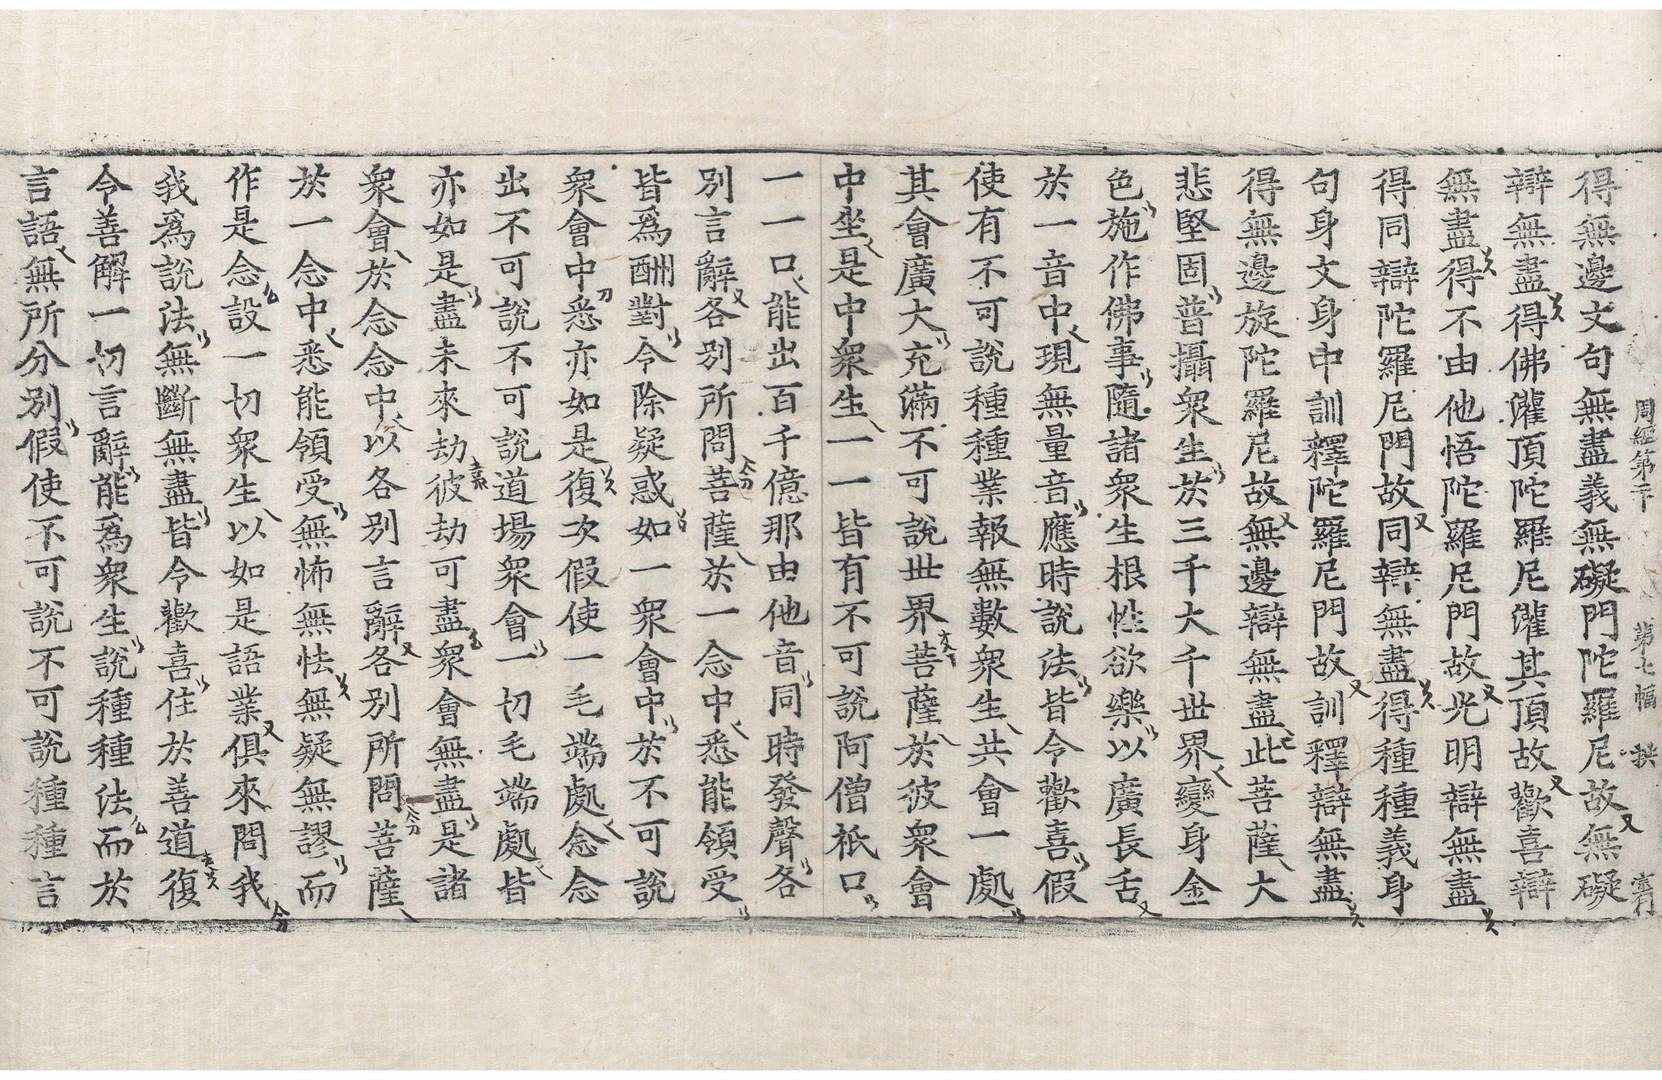 周經第 第七幅 拱
得無邊文句無盡義無礙門陀羅尼故無礙
辯無盡得佛灌頂陀羅尼灌其頂故歡喜辯
無盡得不由他悟陀羅尼門故光明辯無盡
得同辯陀羅尼門故同辯無盡得種種義身
句身文身中訓釋陀羅尼門故訓釋辯無盡
得無邊旋陀羅尼故無邊辯無盡此菩薩大
悲堅固普攝衆生於三千大千世界變身金
色施作佛事隨諸衆生根性欲樂以廣長舌
於一音中現無量音應時說法皆令歡喜假
使有不可說種種業報無數衆生共會一處
其會廣大充滿不可說世界菩薩於彼衆會
中坐是中衆生一一皆有不可說阿僧祇口
一一口能出百千億那由他音同時發聲各
別言辭各別所問菩薩於一念中悉能領受
皆爲酬對令除疑惑如一衆會中於不可說
衆會中悉亦如是復次假使一毛端處念念
出不可說不可說道場衆會一切毛端處皆
亦如是盡未來劫彼劫可盡衆會無盡是諸
衆會於念念中以各別言辭各別所問菩薩
於一念中悉能領受無怖無怯無疑無謬而
作是念設一切衆生以如是語業俱來問我
我爲說法無斷無盡皆令歡喜住於善道復
令善解一切言辭能爲衆生說種種法而於
言語無所分別假使不可說不可說種種言